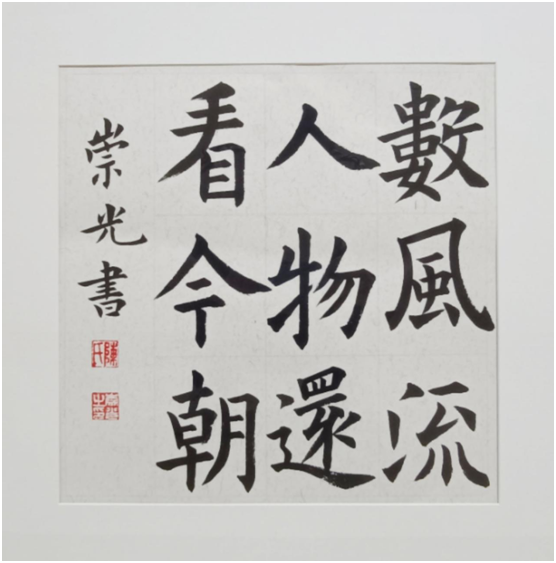 數風流
人物還
看今朝
崇光書
陳氏